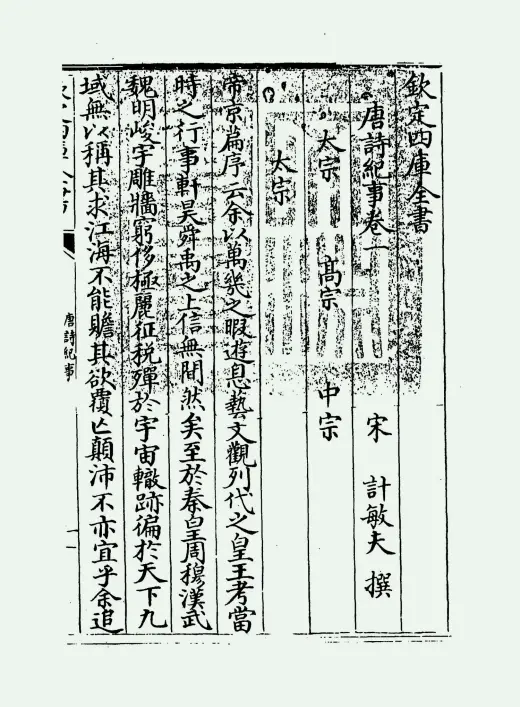 欽定四庫全書
唐詩紀事卷一
宋 計敏夫 撰
太宗 高宗 中宗
太宗
帝京篇序云余以萬幾之暇遊息藝文觀列代之皇王考當
時之行事軒昊舜禹之上信無間然矣至於秦皇周穆漢武
魏明峻宇雕牆窮侈極麗征稅殫於宇宙轍跡徧於天下九
域無以稱其求江海不能贍其欲覆亡顛沛不亦宜乎余追
唐詩紀事
一